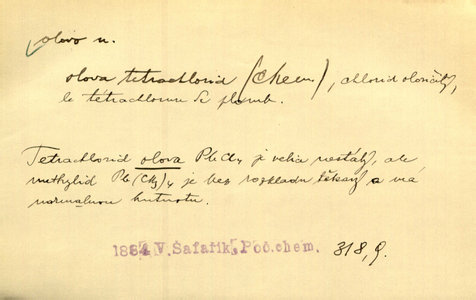 olovo n.
olova tetrachlorid (chem.), chlorid olovičitý,
le tétrachlorure de plomb.
Tetrachlorid olova PbCl4 je velia nestálý, ale
methylid Pb(CH3)4 je bez rozkladu těkavý a má
normalnou hutnotu.
1884 V. Šafařík, Poč. chem. 318, 9.